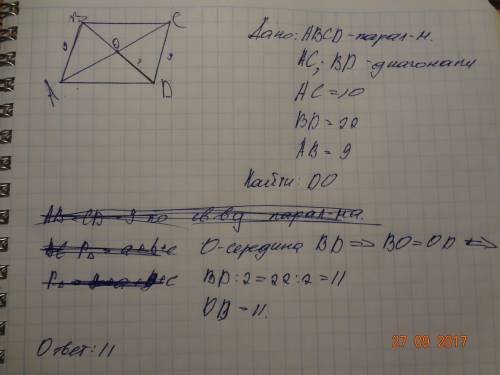 B C
9 O 9
A D
Дано: ABCD-парал-м.
AC; BD-диагонали
AC=10
BD=22
AB=9
Найти: DO
AB=CD=9 по св-ву парал-ма.
O-середина BD => BO=OD =>
BD:2=22:2=11
OB=11.
Ответ: 11
27 09 2017